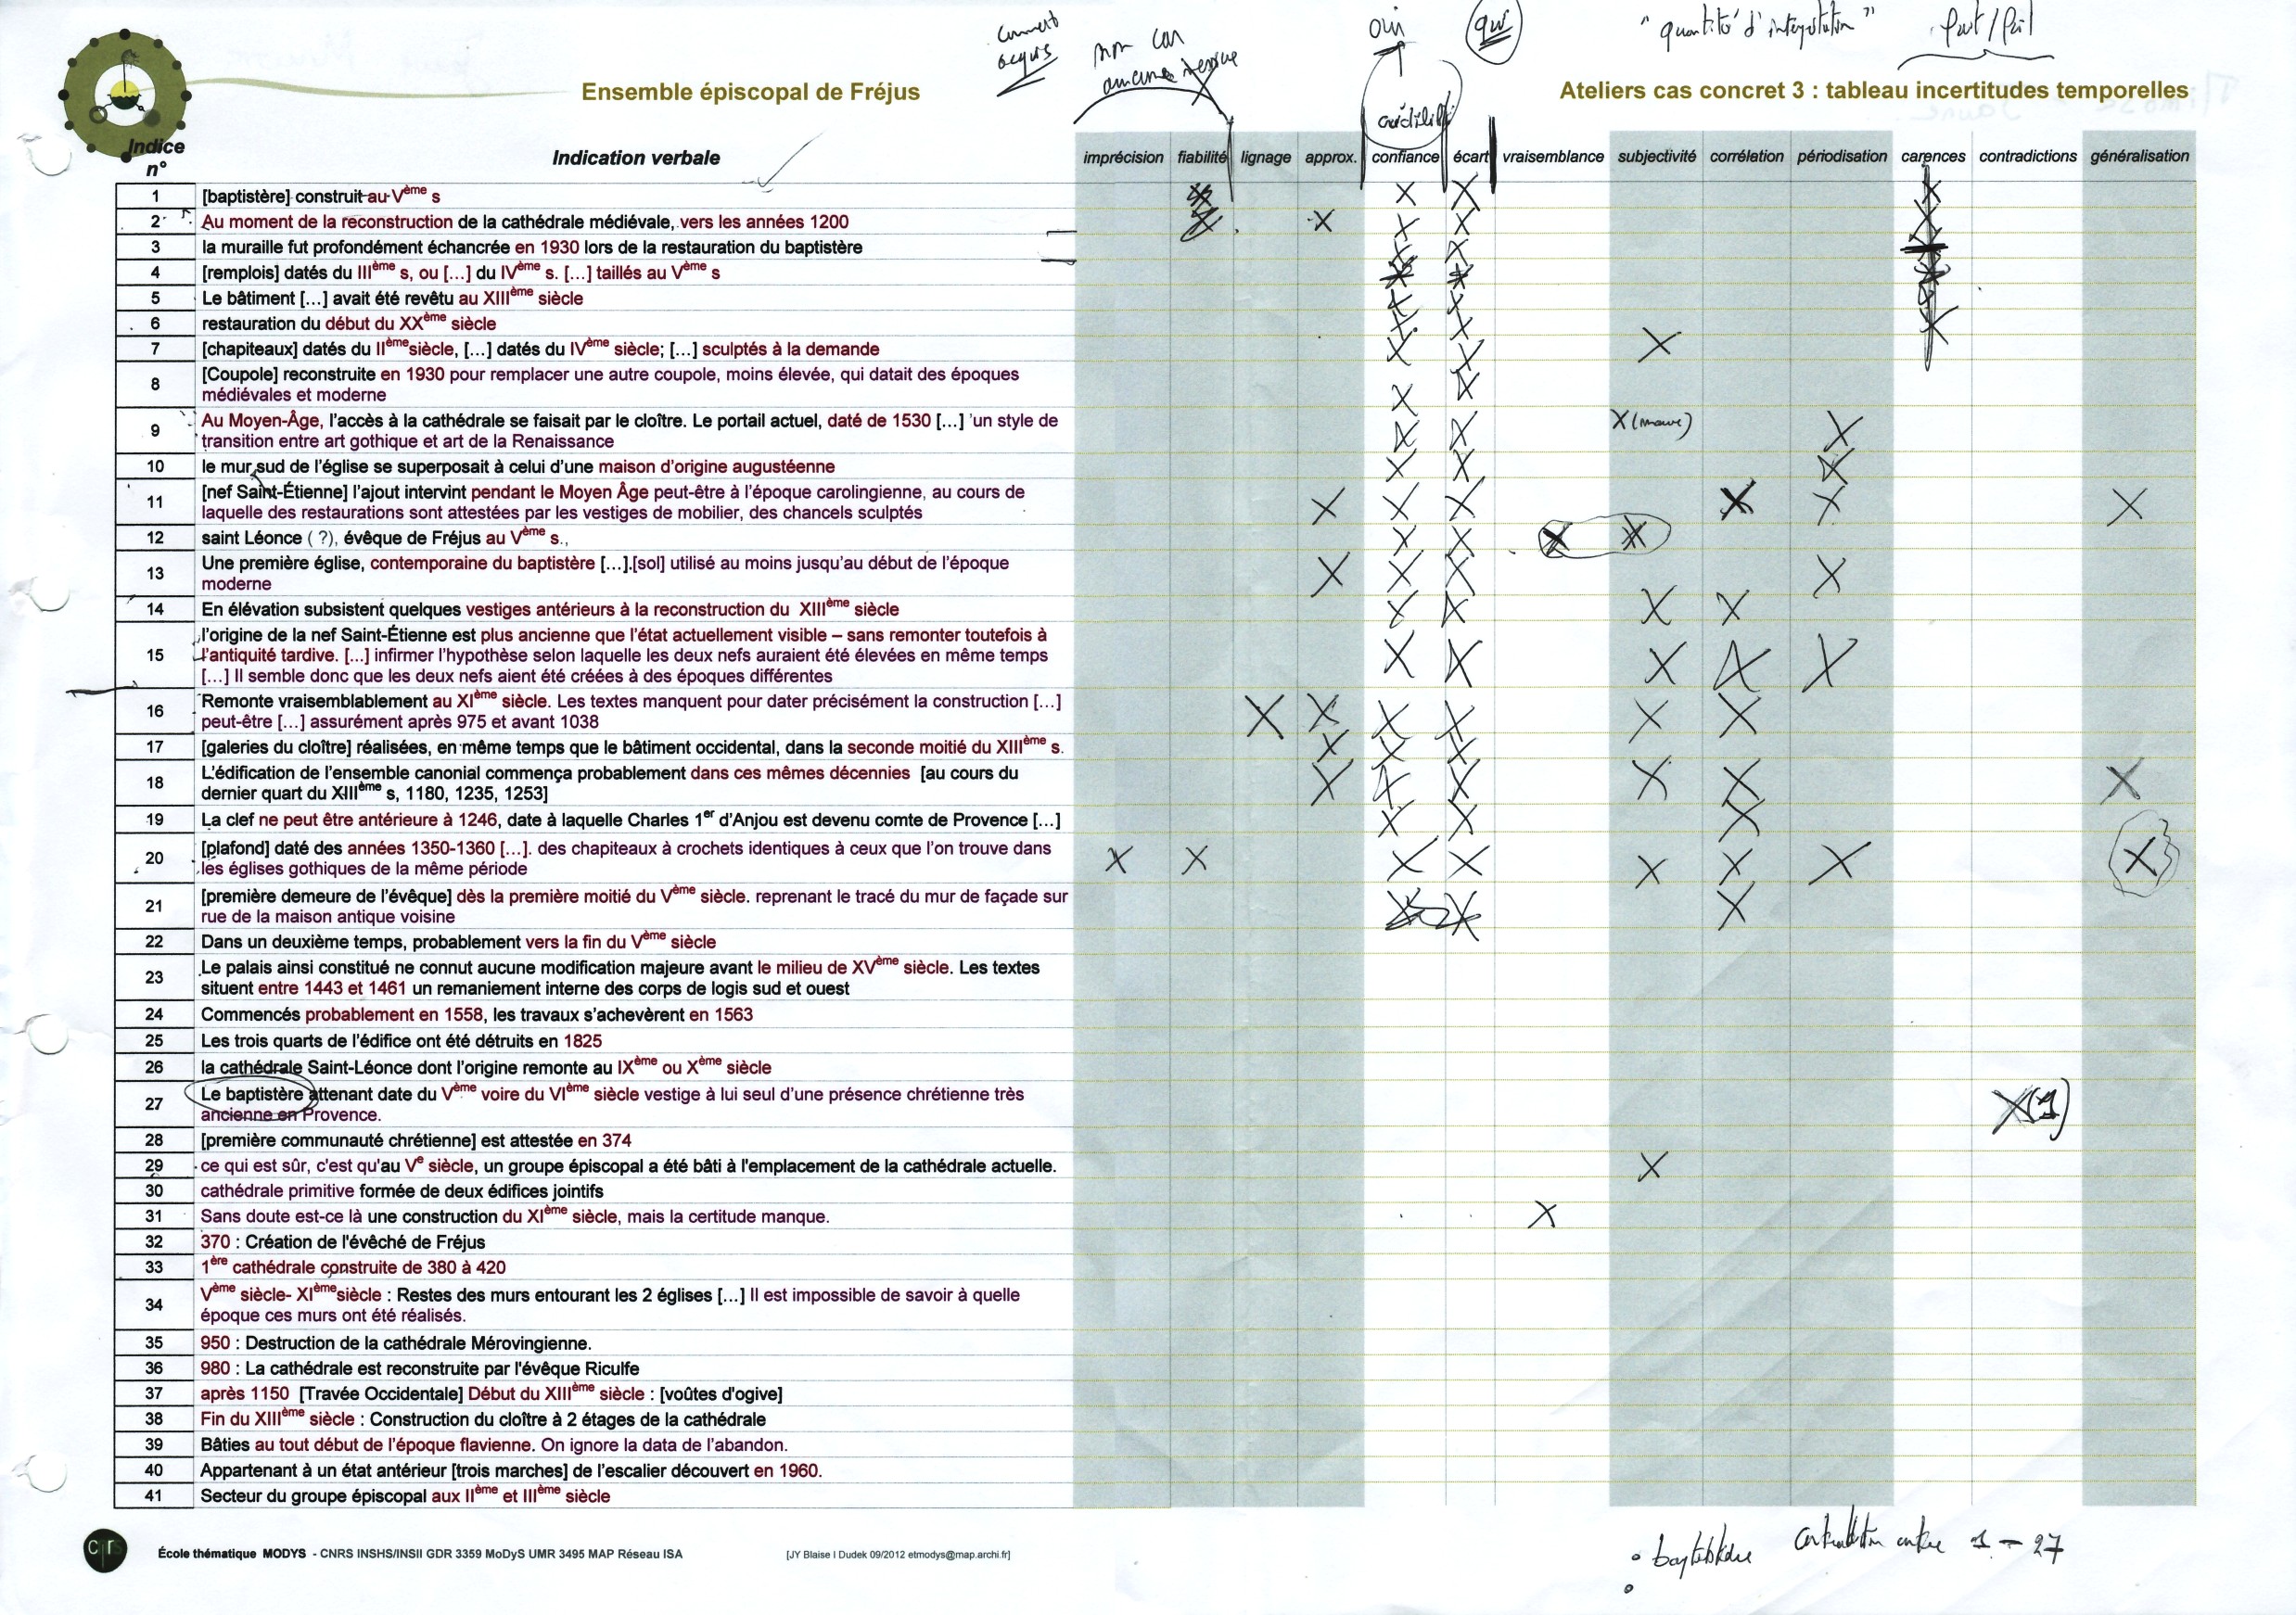 comment
acquis
non car
aucune
oui
qui
"quantité d'interprétation"
crédibilité
Ensemble épiscopal de Fréjus
Ateliers cas concret 3 : tableau incertitudes temporelles
Indice n° Indication verbale imprécision fiabilité lignage approx. confiance écart vraisemblance subjectivité corrélation périodisation carences contradictions généralisation
1 [baptistère] construit au Vème s
2 Au moment de la reconstruction de la cathédrale médiévale, vers les années 1200
3 la muraille fut profondément échancrée en 1930 lors de la restauration du baptistère
4 [remplois] datés du IIIème s, ou [...] du IVème s. [...] taillés au Vème s
5 Le bâtiment [...] avait été revêtu au XIIIème siècle
6 restauration du début du XXème siècle
7 [chapiteaux] datés du IIèmesiècle, [...] datés du IVème siècle; [...] sculptés à la demande
8 [Coupole] reconstruite en 1930 pour remplacer une autre coupole, moins élevée, qui datait des époques
médiévales et moderne
9 Au Moyen-Âge, l'accès à la cathédrale se faisait par le cloître. Le portail actuel, daté de 1530 [...] 'un style de
transition entre art gothique et art de la Renaissance
X (mauve)
10 le mur sud de l'église se superposait à celui d'une maison d'origine augustéenne
11 [nef Saint-Étienne] l'ajout intervint pendant le Moyen Âge peut-être à l'époque carolingienne, au cours de
laquelle des restaurations sont attestées par les vestiges de mobilier, des chancels sculptés
12 saint Léonce ( ?), évêque de Fréjus au Vème s.,
13 Une première église, contemporaine du baptistère [...].[sol] utilisé au moins jusqu'au début de l'époque
moderne
14 En élévation subsistent quelques vestiges antérieurs à la reconstruction du XIIIème siècle
15 l'origine de la nef Saint-Étienne est plus ancienne que l'état actuellement visible – sans remonter toutefois à
l'antiquité tardive. [...] infirmer l'hypothèse selon laquelle les deux nefs auraient été élevées en même temps
[...] Il semble donc que les deux nefs aient été créées à des époques différentes
16 Remonte vraisemblablement au XIème siècle. Les textes manquent pour dater précisément la construction [...]
peut-être [...] assurément après 975 et avant 1038
17 [galeries du cloître] réalisées, en même temps que le bâtiment occidental, dans la seconde moitié du XIIIème s.
18 L'édification de l'ensemble canonial commença probablement dans ces mêmes décennies [au cours du
dernier quart du XIIIème s, 1180, 1235, 1253]
19 La clef ne peut être antérieure à 1246, date à laquelle Charles 1er d'Anjou est devenu comte de Provence [...]
20 [plafond] daté des années 1350-1360 [...]. des chapiteaux à crochets identiques à ceux que l'on trouve dans
les églises gothiques de la même période
21 [première demeure de l'évêque] dès la première moitié du Vème siècle. reprenant le tracé du mur de façade sur
rue de la maison antique voisine
22 Dans un deuxième temps, probablement vers la fin du Vème siècle
23 Le palais ainsi constitué ne connut aucune modification majeure avant le milieu de XVème siècle. Les textes
situent entre 1443 et 1461 un remaniement interne des corps de logis sud et ouest
24 Commencés probablement en 1558, les travaux s'achevèrent en 1563
25 Les trois quarts de l'édifice ont été détruits en 1825
26 la cathédrale Saint-Léonce dont l'origine remonte au IXème ou Xème siècle
27 Le baptistère attenant date du Vème voire du VIème siècle vestige à lui seul d'une présence chrétienne très
ancienne en Provence.
X(1)
28 [première communauté chrétienne] est attestée en 374
29 ce qui est sûr, c'est qu'au Ve siècle, un groupe épiscopal a été bâti à l'emplacement de la cathédrale actuelle.
30 cathédrale primitive formée de deux édifices jointifs
31 Sans doute est-ce là une construction du XIème siècle, mais la certitude manque.
32 370 : Création de l'évêché de Fréjus
33 1ère cathédrale construite de 380 à 420
34 Vème siècle- XIèmesiècle : Restes des murs entourant les 2 églises [...] Il est impossible de savoir à quelle
époque ces murs ont été réalisés.
35 950 : Destruction de la cathédrale Mérovingienne.
36 980 : La cathédrale est reconstruite par l'évêque Riculfe
37 après 1150 [Travée Occidentale] Début du XIIIème siècle : [voûtes d'ogive]
38 Fin du XIIIème siècle : Construction du cloître à 2 étages de la cathédrale
39 Bâties au tout début de l'époque flavienne. On ignore la data de l'abandon.
40 Appartenant à un état antérieur [trois marches] de l'escalier découvert en 1960.
41 Secteur du groupe épiscopal aux IIème et IIIème siècle
baptistère contradiction entre 1 – 27
École thématique MODYS - CNRS INSHS/INSII GDR 3359 MoDyS UMR 3495 MAP Réseau ISA
[JY Blaise I Dudek 09/2012 etmodys@map.archi.fr]